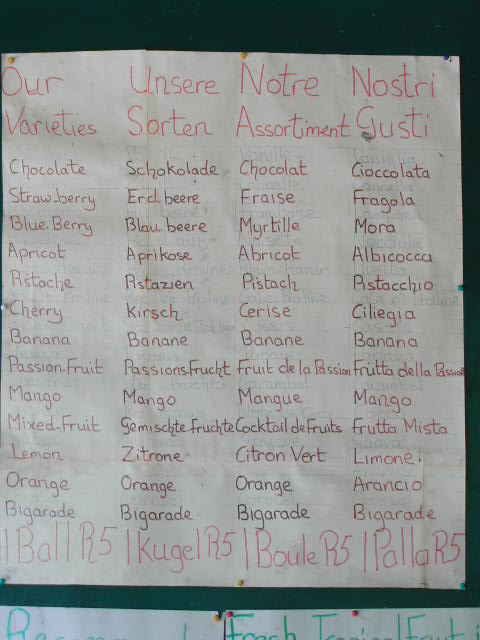 Our Unsere Notre Nostri
Varieties Sorten Assortiment Gusti
Chocolate Schokolade Chocolat Cioccolata
Straw.berry Erd beere Fraise Fragola
Blue.Berry Blau beere Myrtille Mora
Apricot Aprikose Abricot Albicocca
Pistache Pistazien Pistach Pistacchio
Cherry Kirsch Cerise Ciliegia
Banana Banane Banane Banana
Passion-Fruit Passions-Frucht Fruit de la Passion Frutta della Passion
Mango Mango Mangue Mango
Mixed-Fruit Gemischte-Fruchte Cocktail de Fruits Frutta Mista
Lemon Zitrone Citron Vert Limone
Orange Orange Orange Arancio
Bigarade Bigarade Bigarade Bigarade
1 Ball R5 1 Kugel R5 1 Boule R5 1 Palla R5